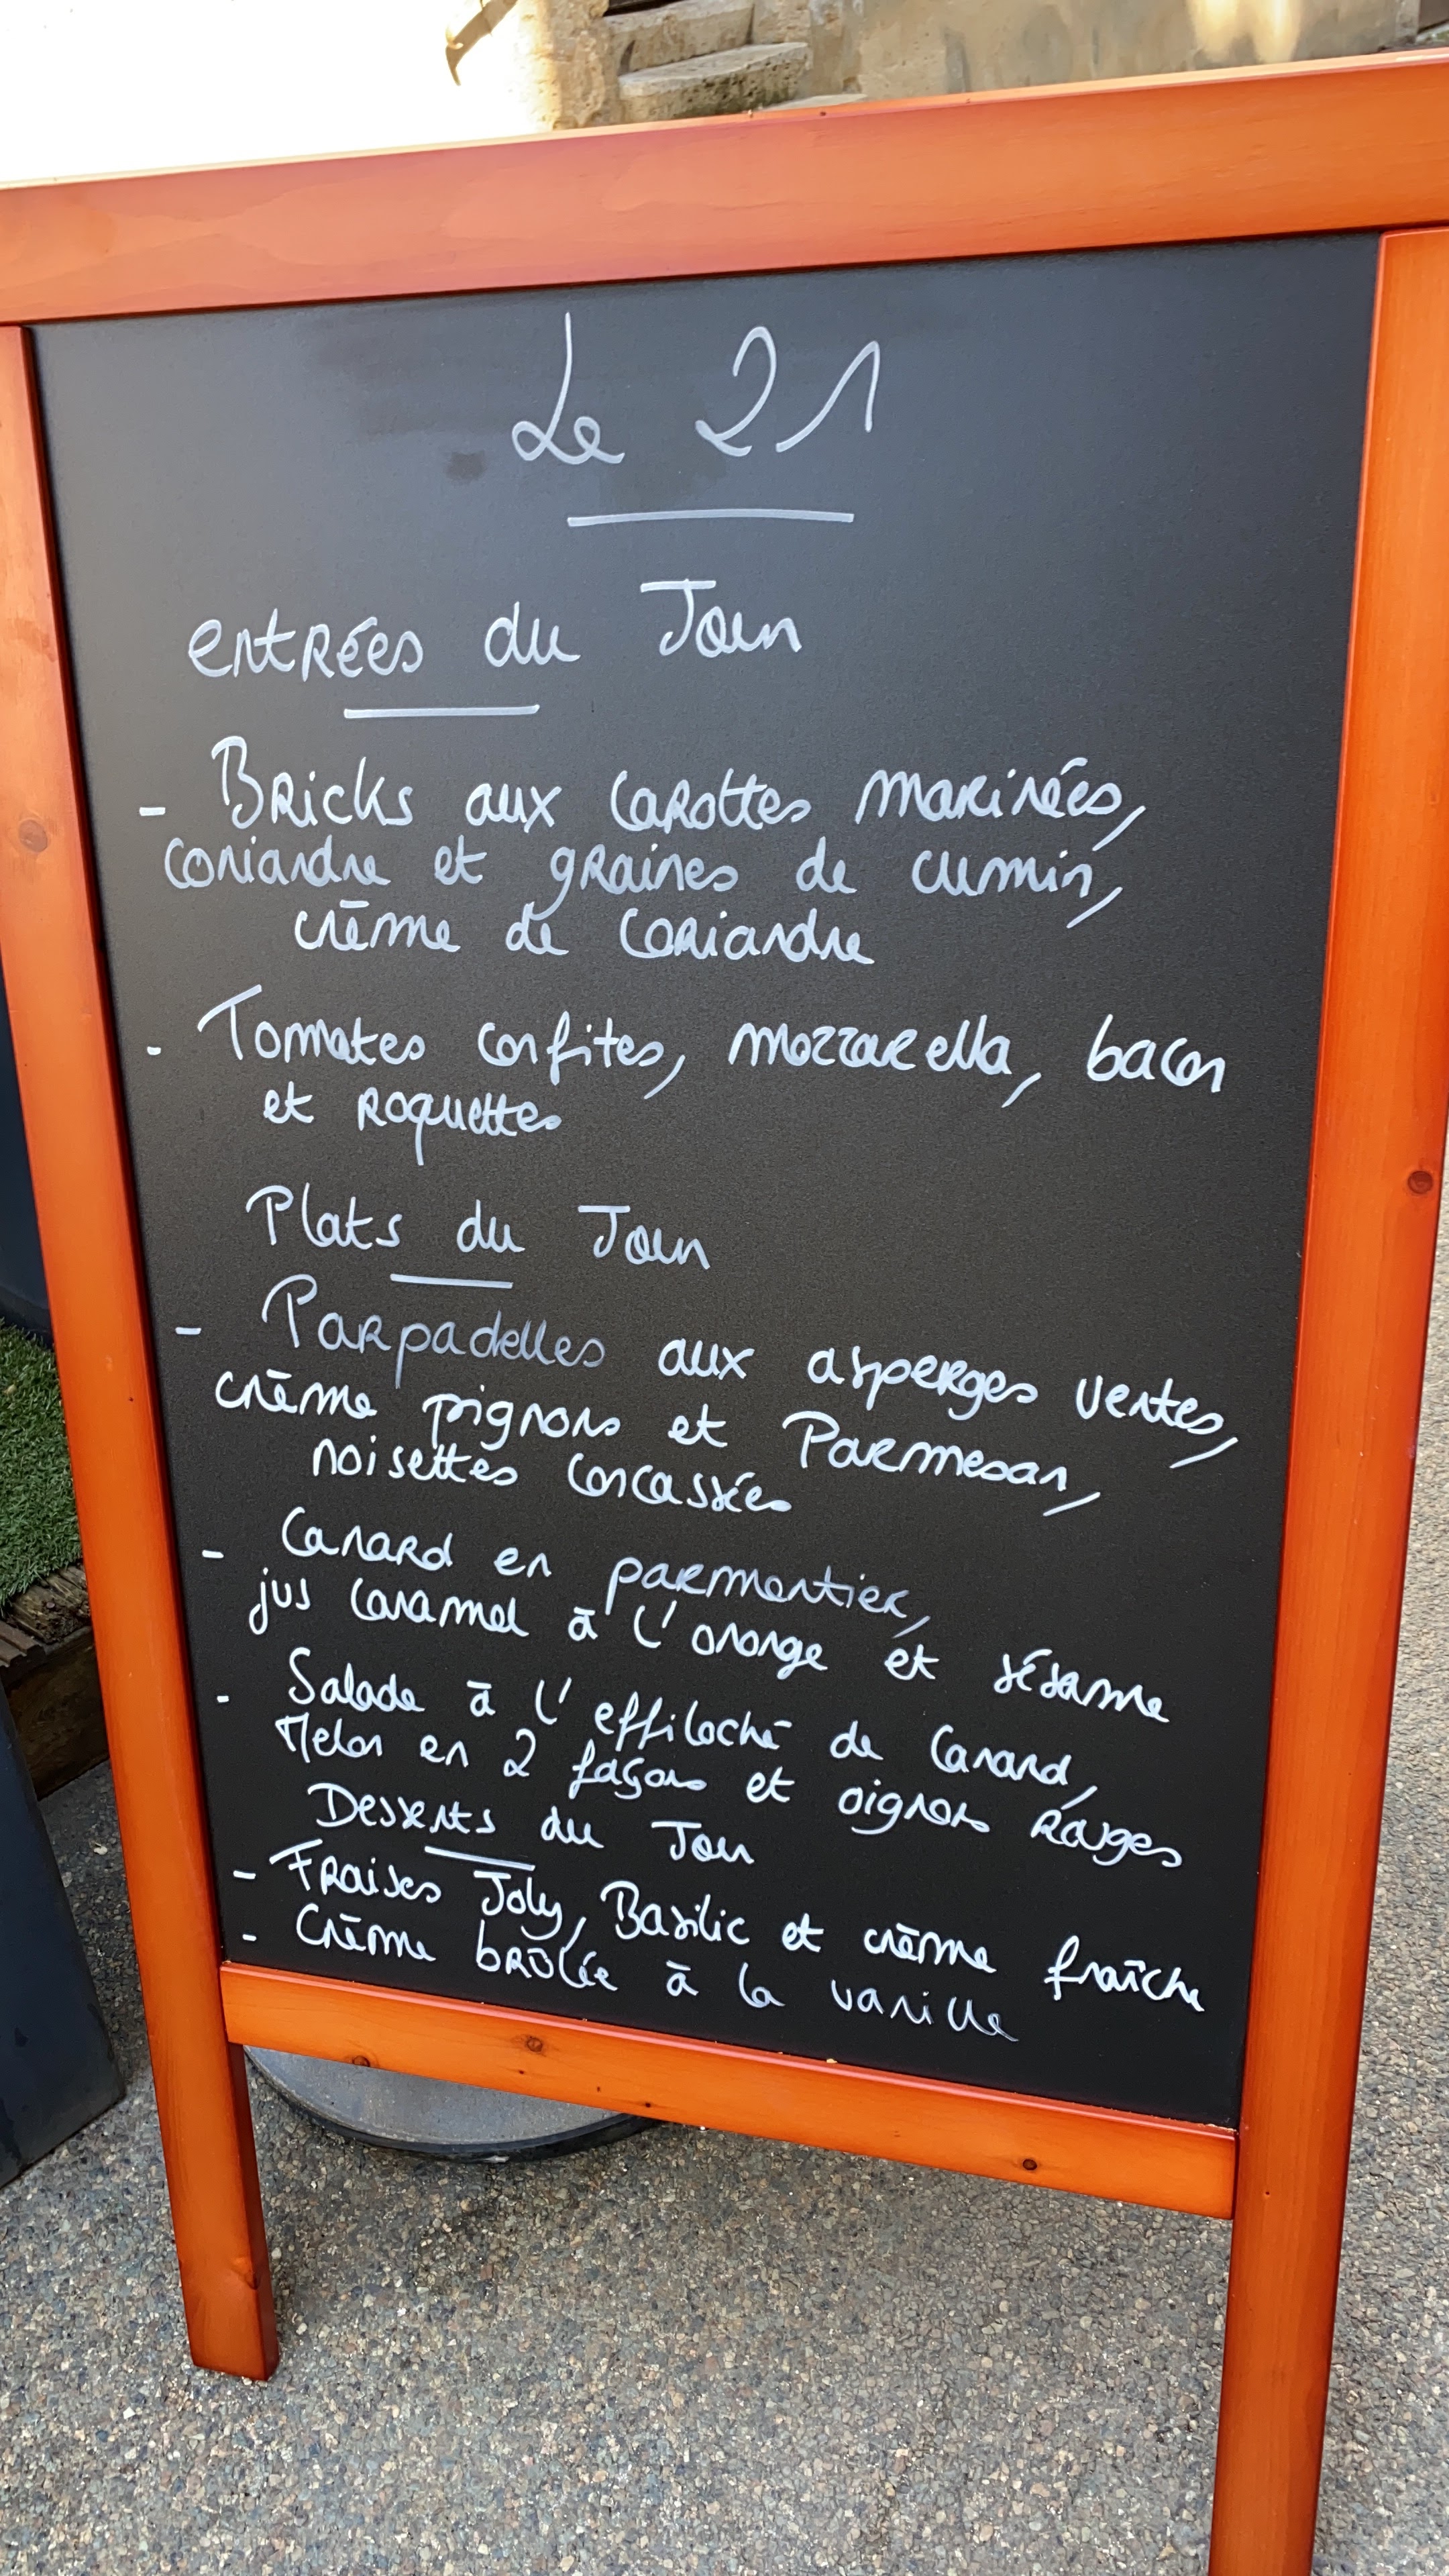 Le 21
entrées du Jour
- Bricks aux carottes marinées,
coriandre et graines de cumin,
crème de coriandre
- Tomates confites, mozzarella, bacon
et roquettes
Plats du Jour
- Parpadelles aux asperges vertes,
crème pignons et Parmesan,
noisettes concassées
- Canard en parmentier,
jus caramel à l'orange et sésame
- Salade à l'effiloché de Canard,
Melon en 2 façons et oignons Rouges
Desserts du Jour
- Fraises Joly, Basilic et crème fraîche
- Crème brûlée à la vanille